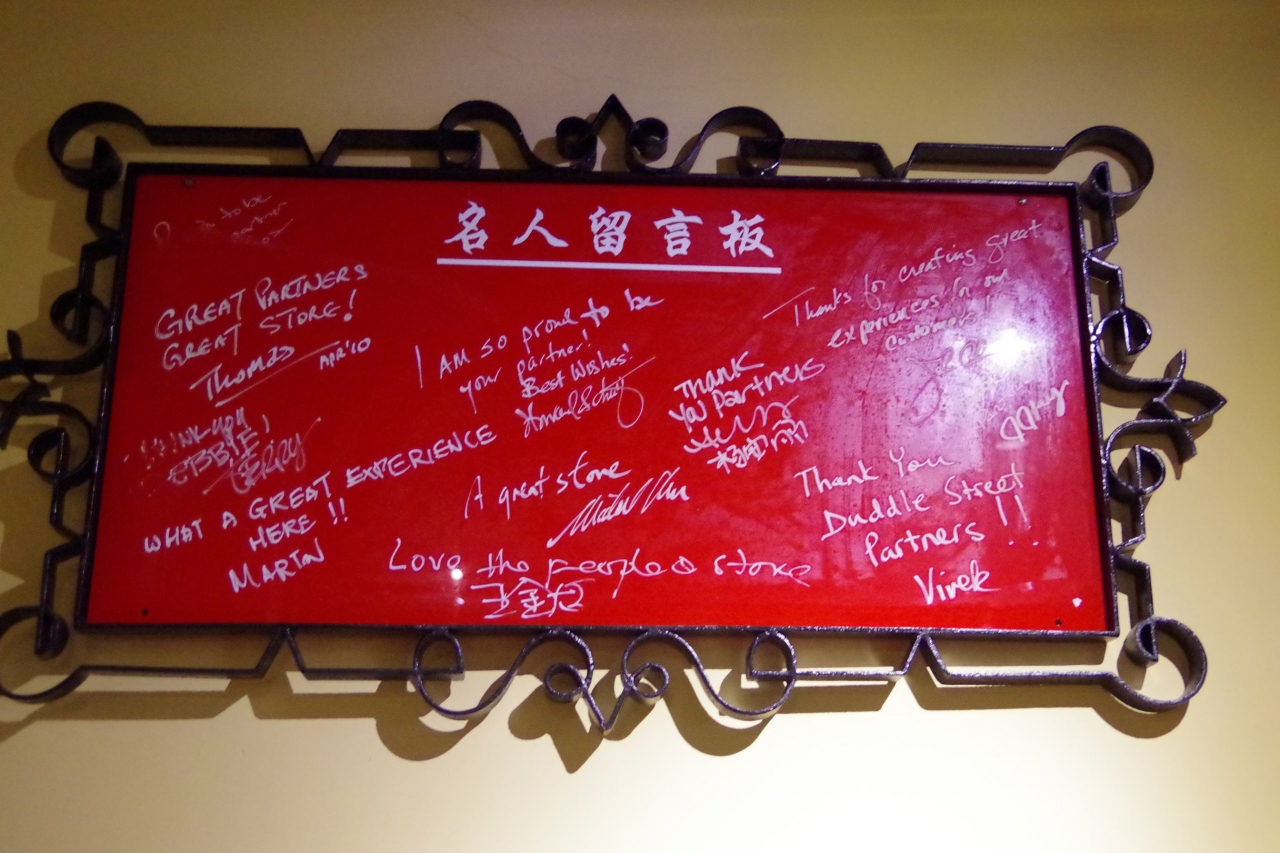 名人留言板
to be
GREAT PARTNERS
GREAT STORE!
THOMAS
APR'10
I AM SO proud to be
your partner!
Best Wishes!
Thanks for creating great
experiences for our
customers!
THANK
YOU Partners
THANK-YOU
WHAT A GREAT EXPERIENCE
HERE !!
MARTIN
A great store
Love the people & store
Thank You
Duddle Street
Partners !!
Vivek